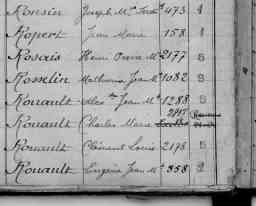 Ronsin Joseph Mie 473 4
Ropert Jean Marie 158 1
Roscais Henri 2177 5
Rosselin Mathurin Jean Mie 1082 3
Rouault Jean Mie 1288 3
Rouault Charles Marie
Rouault Clément Louis 2178 5
Rouault Eugène Jean Mie 358 2